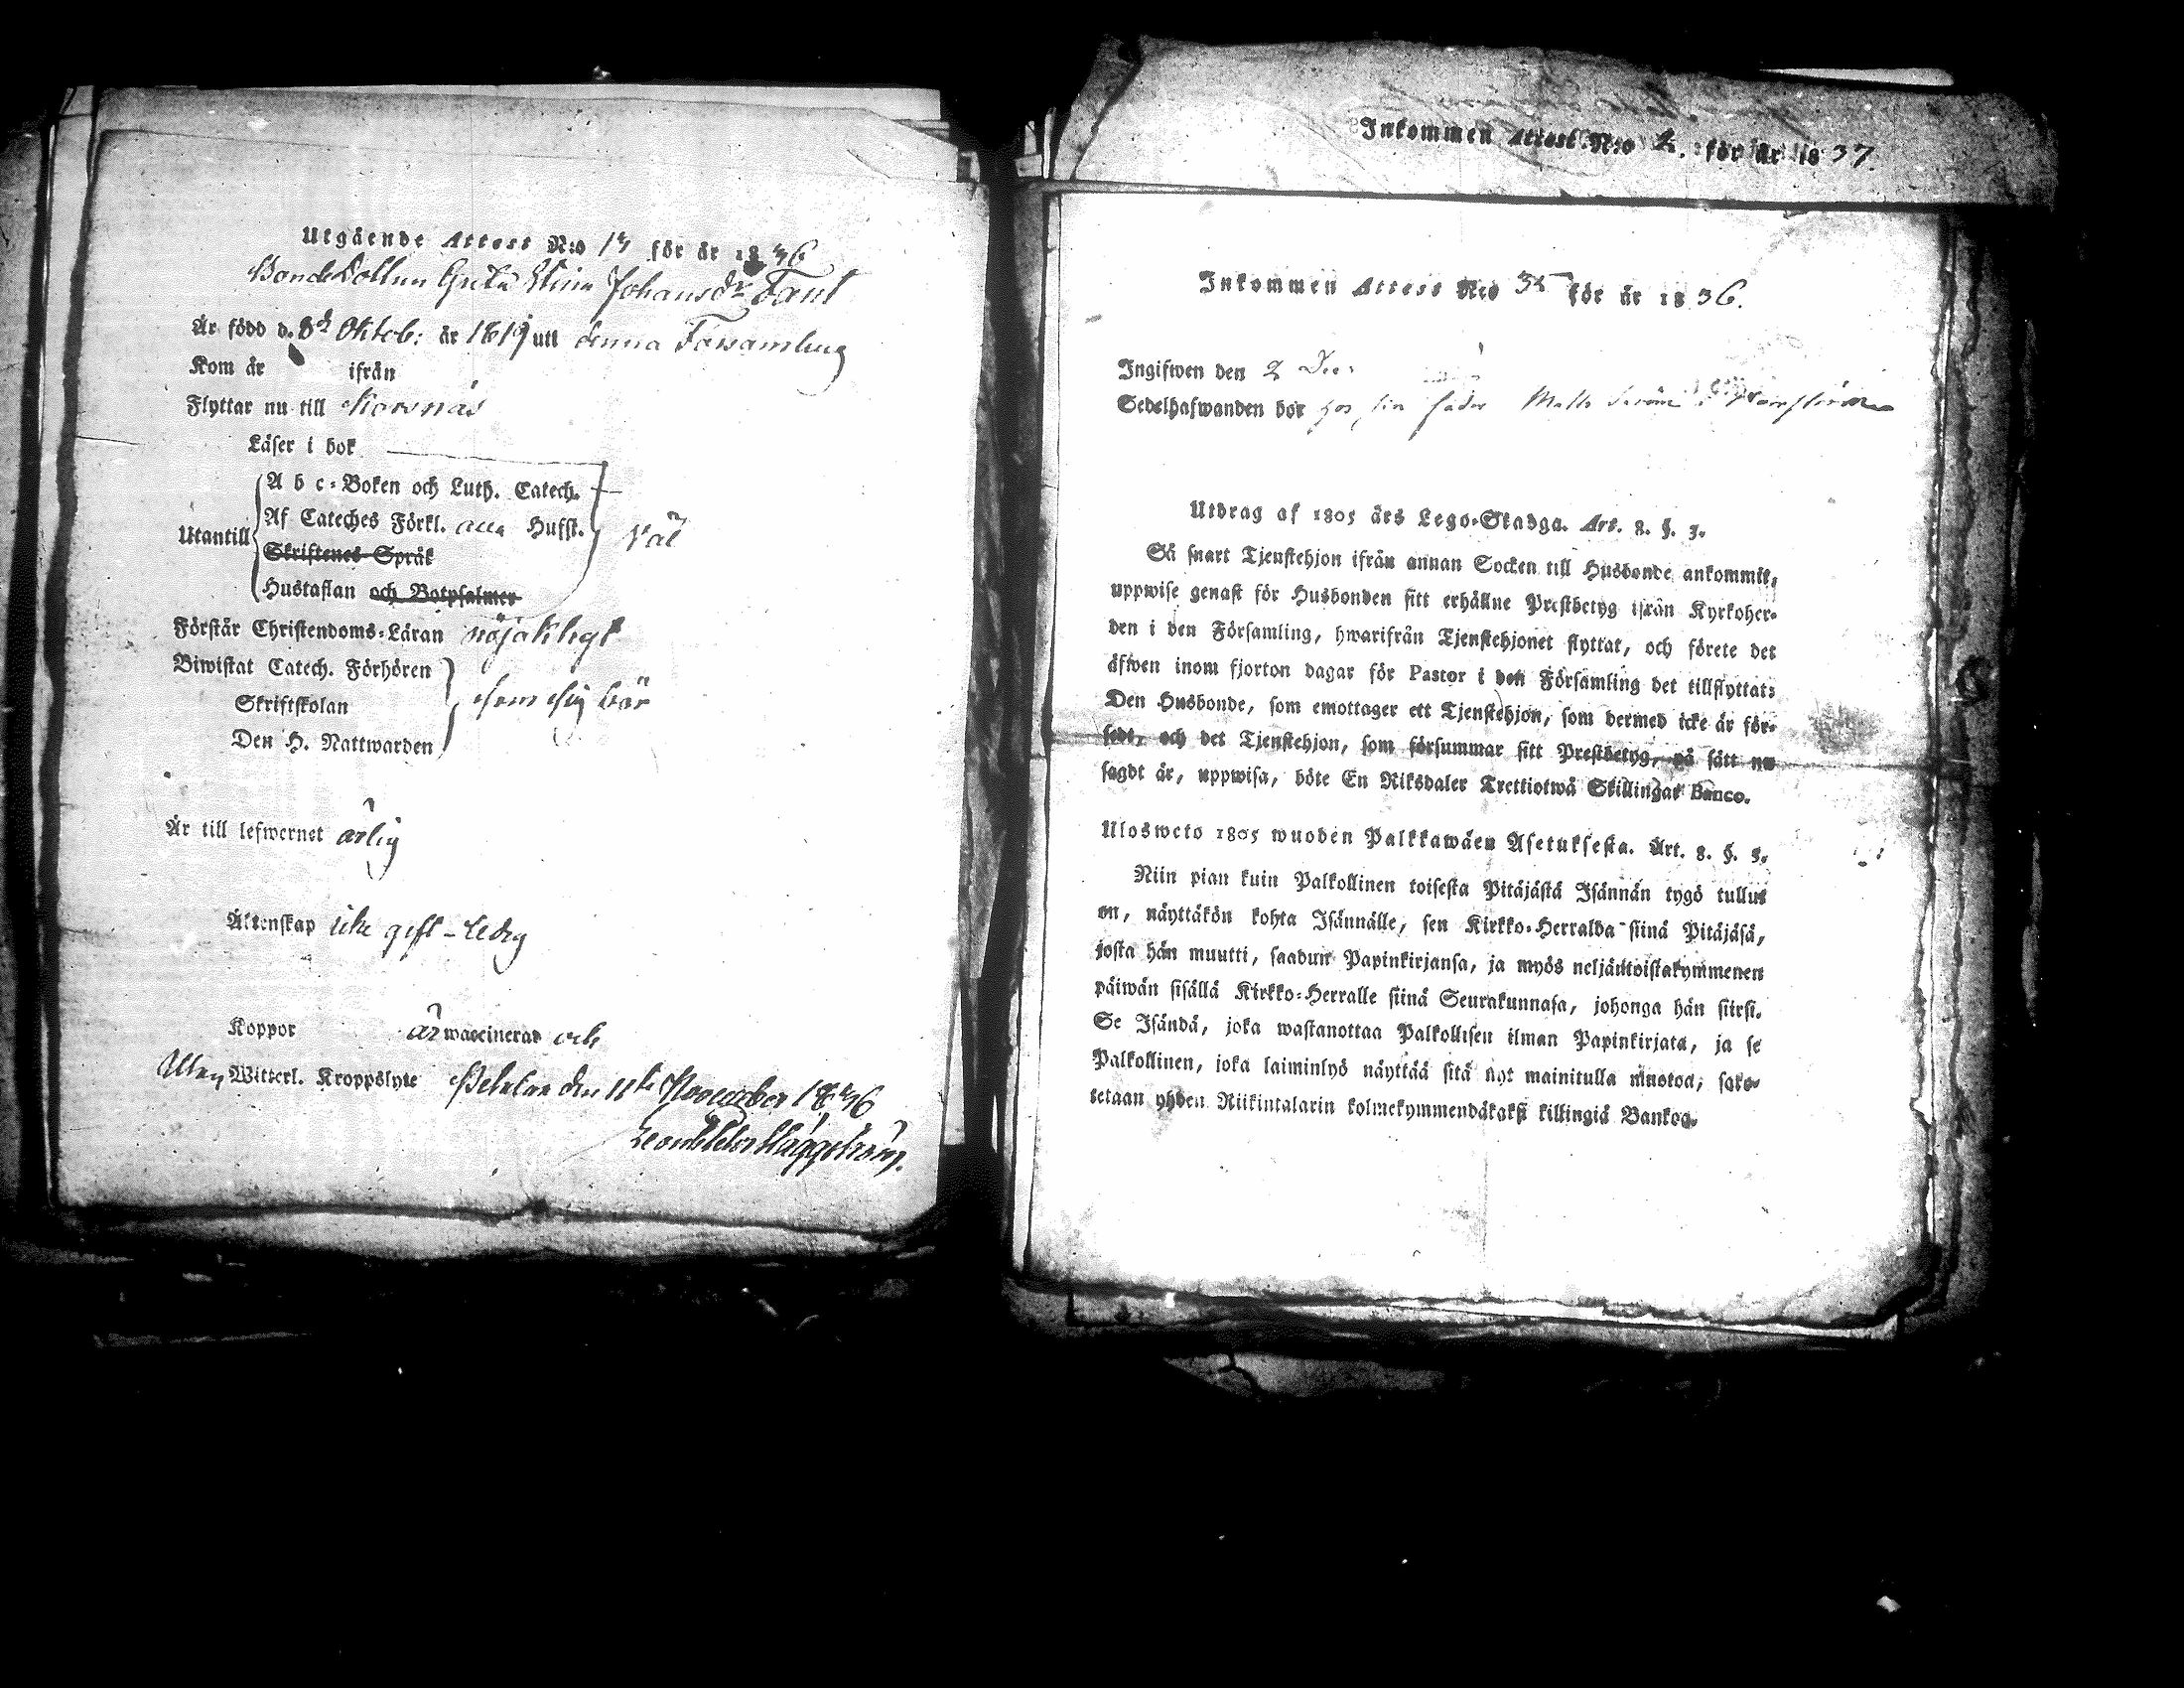 Utgående Attest N:o 13 för år 1836
Bondedottren Greta Stina Johansdr Fant
Är född d. 8de Oktob: år 1819 utt denna Församling
Kom år ifrån
Flyttar nu till Korsnäs
Läser i bok
Utantill
A b c-Boken och Luth. Catech.
Af Cateches Förkl. alla Hufst.
Skriftenes Språk
Hustaflan och Botpsalmer
Väl
Förstår Christendoms-Läran nöjaktigt
Biwistat Catech. Förhören
Skriftskolan
Den H. Nattwarden
som sig bör
Är till lefwernet ärlig
Äktenskap icke gift - Ledig
Koppor är waccinerad och
Utan Witterl. Kroppslyte Petalax den 11te November 1836
Häggström.
Inkommen Attest N:o 2. för år 1837.
Inkommen Attest N:o 35 för år 1836.
Ingifwen den 2 Dec:
Sedelhafwanden bor hos sin fader Matts
Utdrag af 1805 års Lego-Stadga. Art. 8. §. 3.
Så snart Tjenstehjon ifrån annan Socken till Husbonde ankommit,
uppwise genast för Husbonden sitt erhållne Prestbetyg ifrån Kyrkoher-
den i den Församling, hwarifrån Tjenstehjonet flyttat, och förete det
äfwen inom fjorton dagar för Pastor i den Församling det tillflyttat:
Den Husbonde, som emottager ett Tjenstehjon, som dermed icke är för-
sedt, och det Tjenstehjon, som försummar sitt Prestbetyg, på sätt nu
sagdt är, uppwisa, böte En Riksdaler Trettiotwå Skillingar Banco.
Ulosweto 1805 wuoden Palkkawäen Asetuksesta. Art. 8. §. 3.
Niin pian kuin Palkollinen toisesta Pitäjästä Isännän tygö tullut
on, näyttäkön kohta Isännälle, sen Kirkko-Herralda siinä Pitäjäsä,
josta hän muutti, saadun Papinkirjansa, ja myös neljäntoistakymmenen
päiwän sisällä Kirkko-Herralle siinä Seurakunnasa, johonga hän siirsi.
Se Isändä, joka wastanottaa Palkollisen ilman Papinkirjata, ja se
Palkollinen, joka laiminlyö näyttää sitä nyt mainitulla muotoa, sako-
tetaan yhden Riikintalarin kolmekymmendäkaksi killingiä Bankoa.